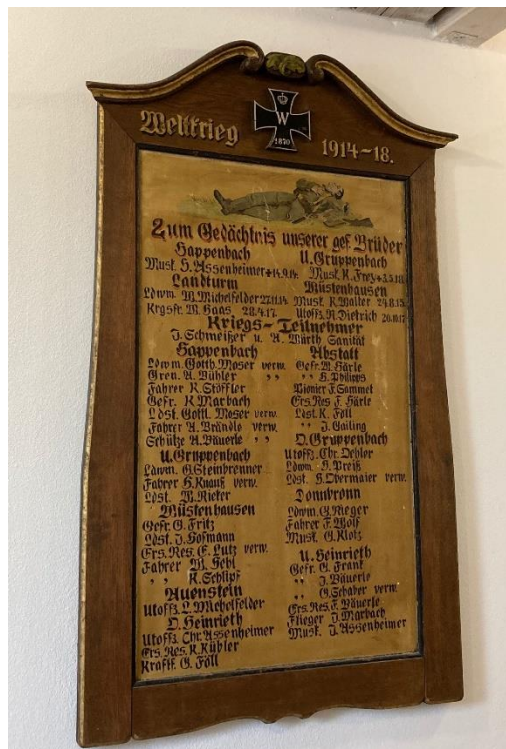 Weltkrieg 1914-18.
W
1870
Zum Gedächtnis unserer gef. Brüder
Happenbach
Musk. H. Assenheimer +14.9.14.
Landturm
Ldwm. W. Michelfelder 27.11.14.
Krgsfr. W. Haas 28.4.17.
U. Gruppenbach
Musk. K. Frey +3.5.18
Wüstenhausen
Musk. K. Walter 24.8.15.
Utoffz. R. Dietrich 20.10.17
Kriegs-Teilnehmer
J. Schmeißer u. A. Würth Sanität
Happenbach
Ldwm. Gotth. Moser verw.
Gren. A. Bühler " "
Fahrer K. Stöffler
Gefr. K. Marbach
Ldst. Gottl. Moser verw.
Fahrer A. Brändle verw.
Schütze A. Bäuerle " "
U. Gruppenbach
Ldwm. G. Steinbrenner
Fahrer H. Knauß verw.
Ldst. W. Rieker
Wüstenhausen
Gefr. G. Fritz
Ldst. J. Hofmann
Ers. Res. E. Lutz verw.
Fahrer W. Hebl
" " K. Schlipf
Auenstein
Utoffz. L. Michelfelder
O. Heinrieth
Utoffz. Chr. Assenheimer
Ers. Res. K. Kübler
Kraftf. G. Föll
Abstatt
Gefr. W. Härle
" " H. Philipps
Pionier F. Sammet
Ers. Res. F. Härle
Ldst. K. Föll
" J. Gailing
O. Gruppenbach
Utoffz. Chr. Oehler
Ldwm. H. Preiß
Ldst. H. Obermaier verw.
Donnbronn
Ldwm. G. Rieger
Fahrer F. Wolf
Musk. G. Klotz
U. Heinrieth
Gefr. G. Frank
" J. Bäuerle
" G. Schaber verw.
Ers. Res. F. Bäuerle
Flieger J. Marbach
Musk. J. Assenheimer